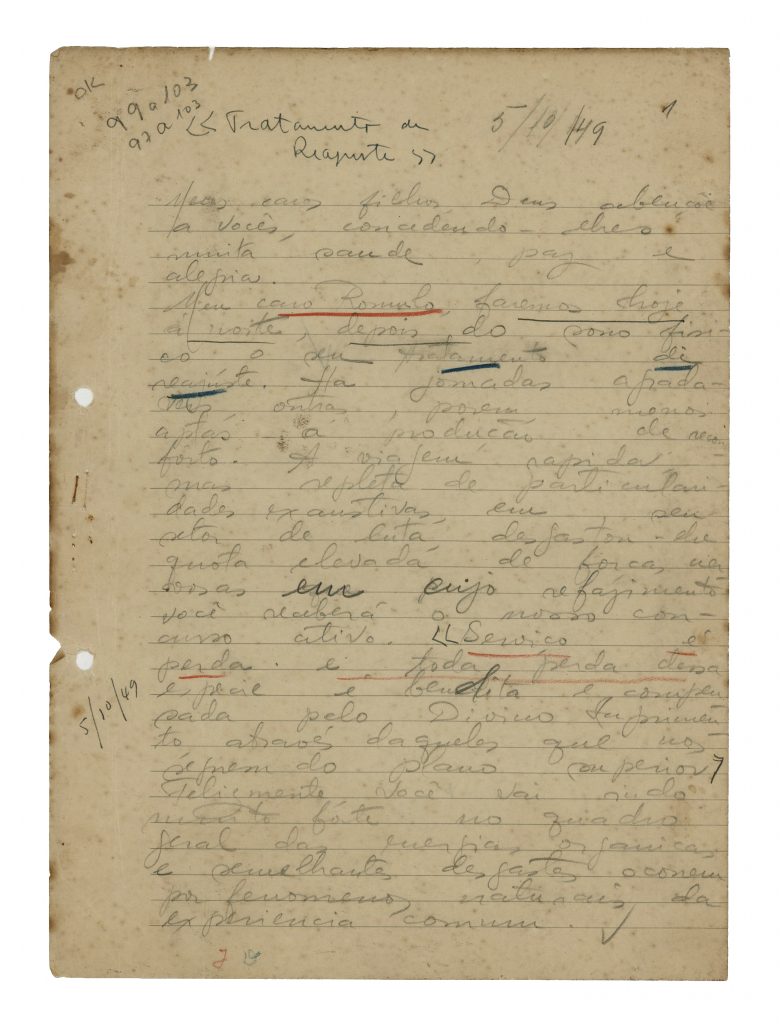 OK
99 a 103
97 a 103
« Tratamento de
Reajuste »
5/10/49
1
Meus caros filhos, Deus abençõe
a vocês, concedendo-lhes
muita saude, paz e
alegria.
Meu caro Romulo, faremos hoje
á noite, depois do sono fisi-
co o seu tratamento de
reajúste. Ha jornadas agrada-
veis outras, porem menos
aptas á produção de recon
fôrto. A viagem rapida,
mas repleta de particulari-
dades exaustivas, em seu
setor de luta, desgastou-lhe
quota elevada de forças ner
vosas em cujo refazimento
você receberá o nosso con-
curso ativo. «Serviço é
perda. e toda perda dessa
especie é bendita e compen
sada pelo Divino Suprimen-
to através daqueles que nos
seguem do plano superior»
Felizmente você vai indo
muito fórte no quadro
geral das energias organicas
e semelhantes desgastes ocorrem
por fenomenos naturais da
experiencia comum.
5/10/49